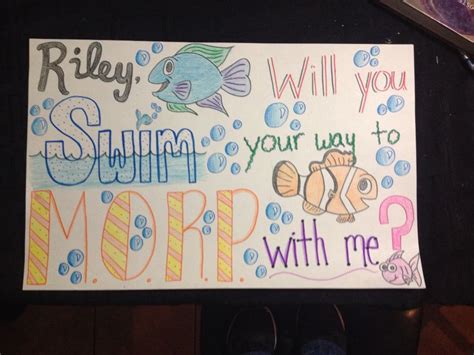 Riley, Will you
Swim your way to
M.O.R.P. with me?